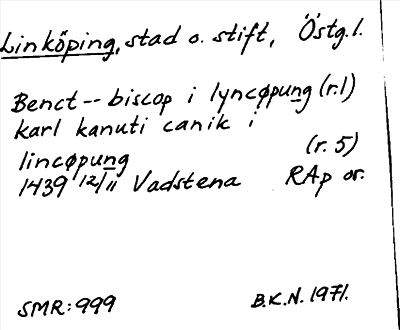 Linköping, stad o. stift, Östg.l.
Benct -- biscop i lyncøpung (r.1)
karl kanuti canik i
lincøpung (r. 5)
1439 12/11 Vadstena RAp or.
SMR: 999 B.K.N. 1971.